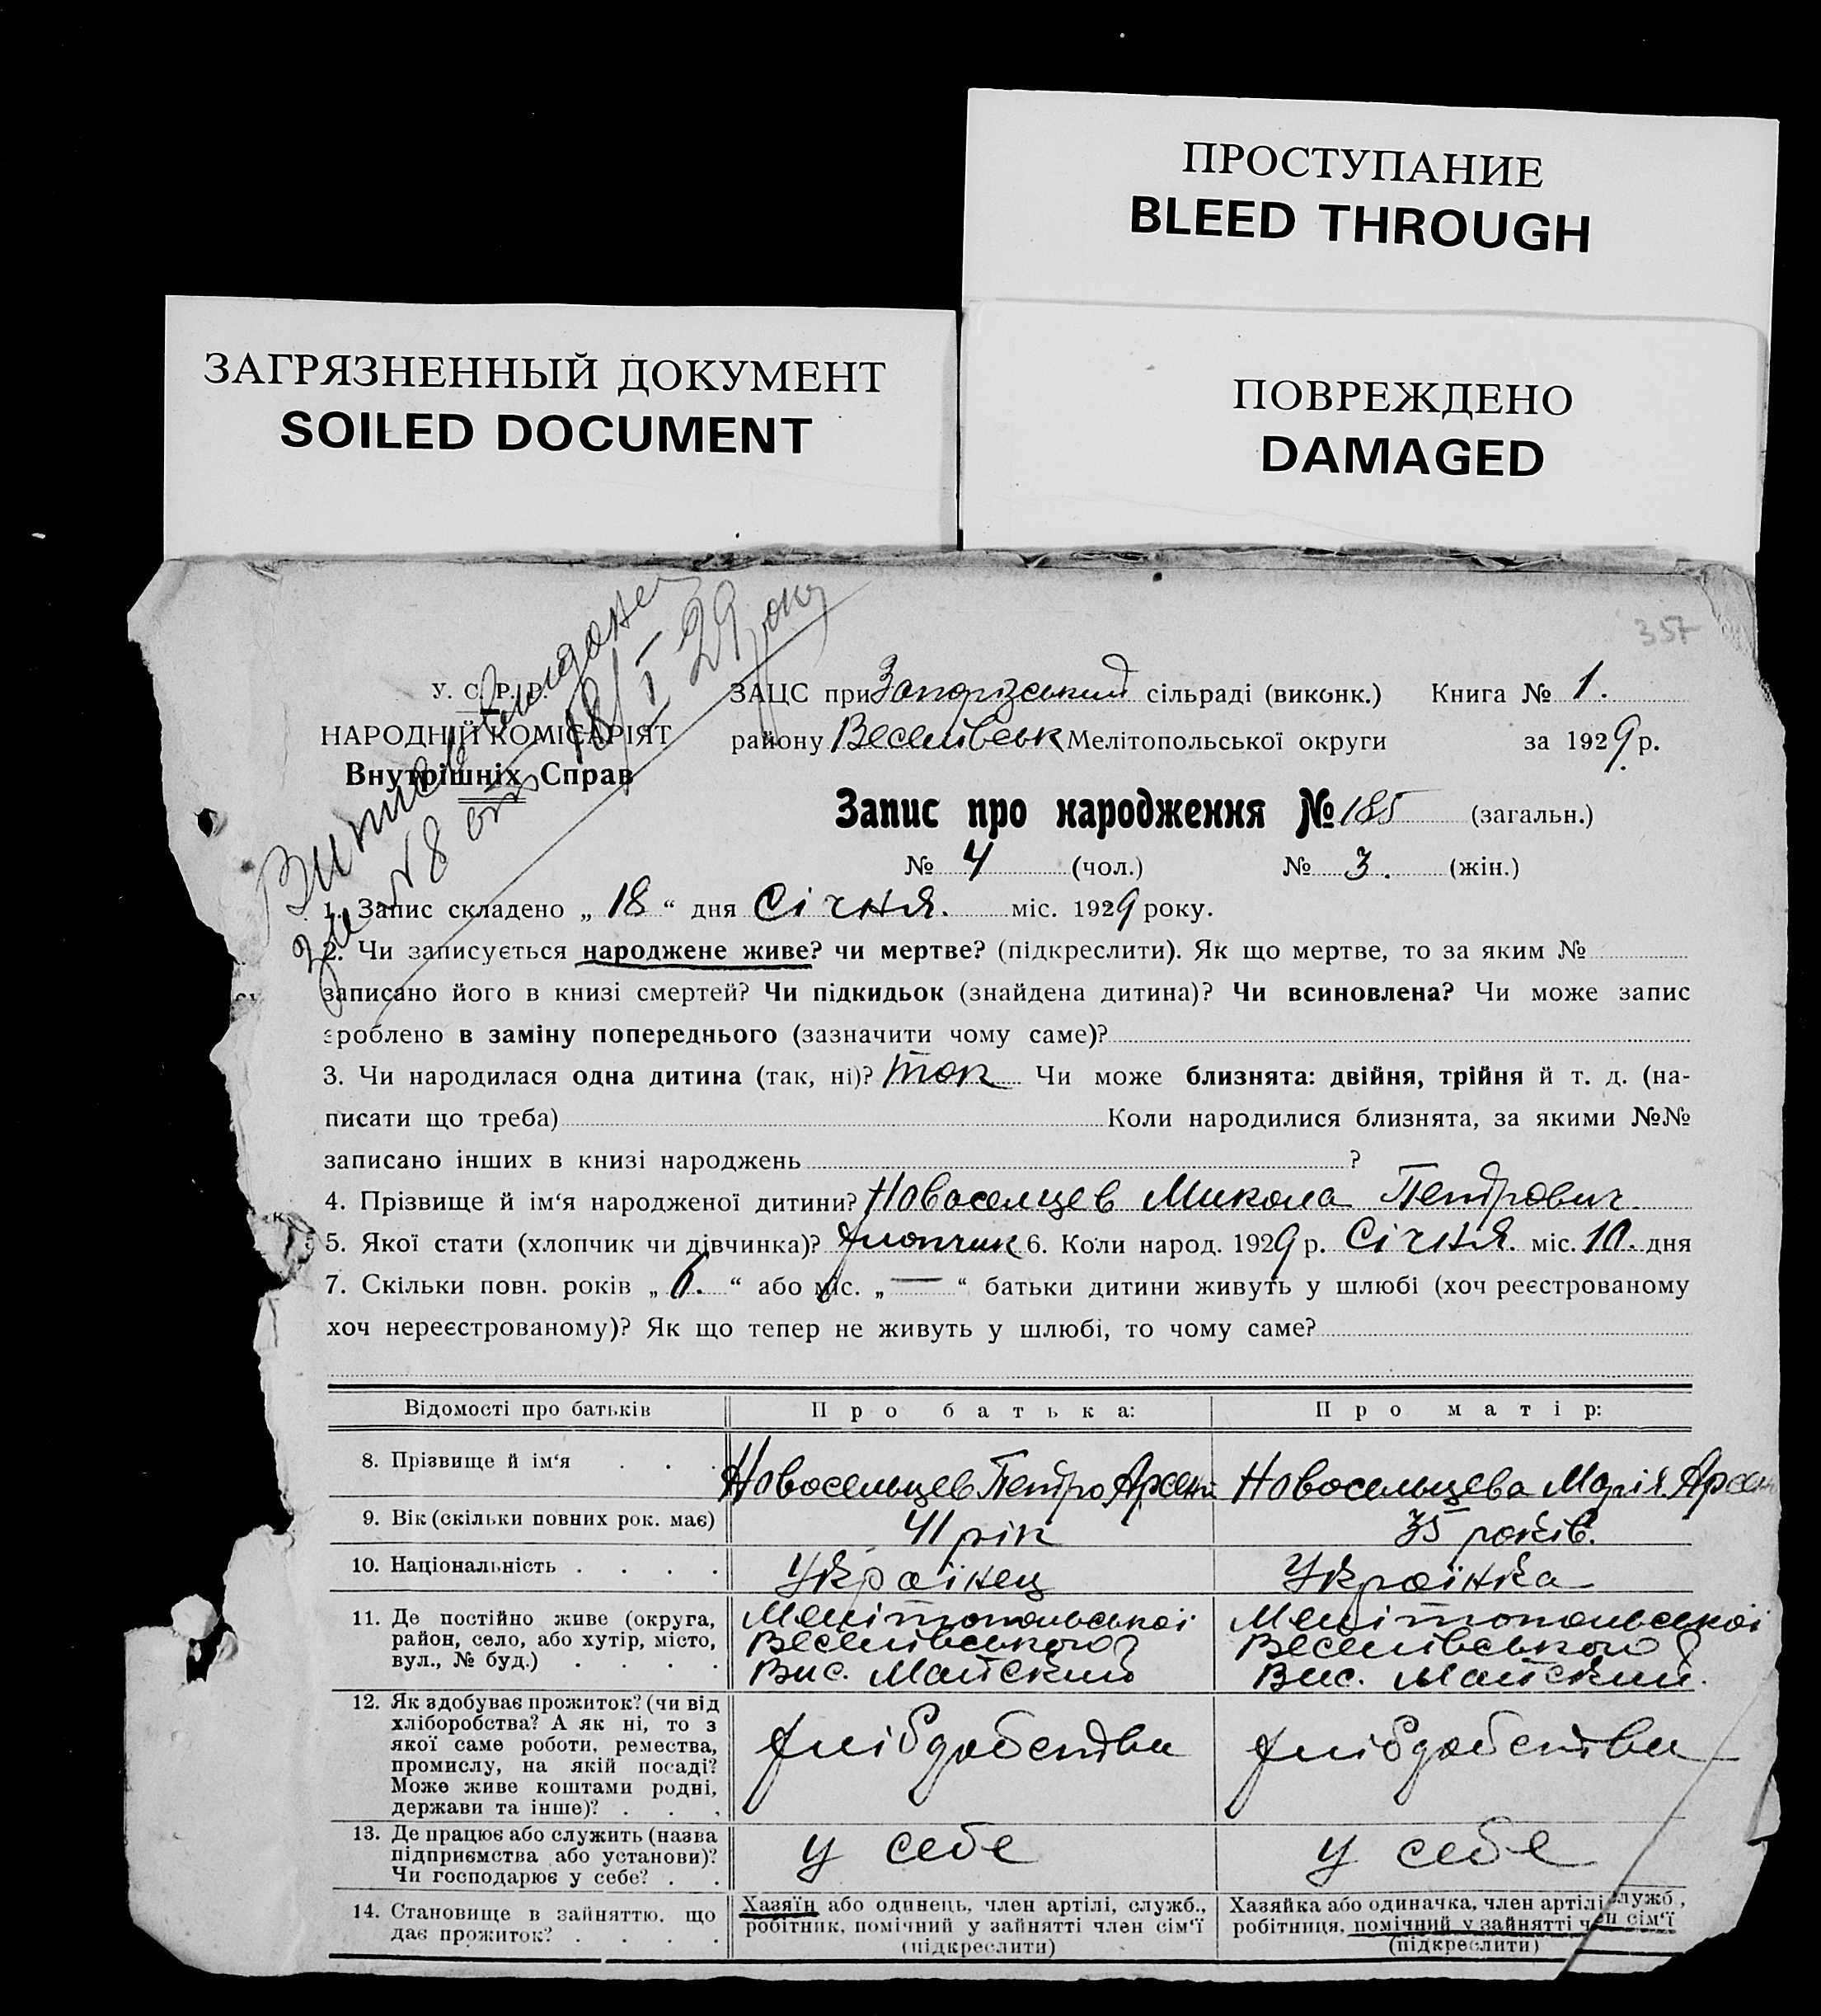 ПРОСТУПАНИЕ
BLEED THROUGH
ЗАГРЯЗНЕННЫЙ ДОКУМЕНТ
SOILED DOCUMENT
ПОВРЕЖДЕНО
DAMAGED
357
Витяг видано
за № 8 от 18/I 29 року
У. С. Р. Р.
НАРОДНІЙ КОМІСАРІЯТ
Внутрішніх Справ
ЗАЦС при Запорізський сільраді (виконк.) Книга № 1.
району Веселівськ Мелітопольської округи за 1929 р.
Запис про народження № 185 (загальн.)
№ 4 (чол.) № 3. (жін.)
1. Запис складено „ 18 “ дня Січня. міс. 1929 року.
2. Чи записується народжене живе? чи мертве? (підкреслити). Як що мертве, то за яким №
записано його в книзі смертей? Чи підкидьок (знайдена дитина)? Чи всиновлена? Чи може запис
зроблено в заміну попереднього (зазначити чому саме)?
3. Чи народилася одна дитина (так, ні)? так Чи може близнята: двійня, трійня й т. д. (на-
писати що треба) Коли народилися близнята, за якими №№
записано інших в книзі народжень ?
4. Прізвище й ім‘я народженої дитини? Новоселцев Микола Петрович
5. Якої стати (хлопчик чи дівчинка)? хлопчик 6. Коли народ. 1929 р. Січня. міс. 10. дня
7. Скільки повн. років „ 6. “ або міс. „ — “ батьки дитини живуть у шлюбі (хоч реєстрованому
хоч нереєстрованому)? Як що тепер не живуть у шлюбі, то чому саме?
Відомості про батьків Про батька: Про матір:
8. Прізвище й ім‘я . . . Новосельцев Петро Арсени Новосельцева Марія Арсен
9. Вік (скільки повних рок. має) 41 рік 35 років.
10. Національність . . . . Українец Українка
11. Де постійно живе (округа, район, село, або хутір, місто, вул., № буд.) . . . .
Мелітопольської Мелітопольської
Веселівського Веселівського
Вис. Майский Вис. Майский.
12. Як здобуває прожиток? (чи від
хліборобства? А як ні, то з
якої саме роботи, ремества,
промислу, на якій посаді?
Може живе коштами родні,
держави та інше)? . . .
хлібдобства хлібдобства
13. Де працює або служить (назва
підприємства або установи)?
Чи господарює у себе? . .
у себе у себе
14. Становище в зайняттю, що
дає прожиток? . . . .
Хазяїн або одинець, член артілі, служб.,
робітник, помічний у зайнятті член сім‘ї
(підкреслити)
Хазяйка або одиначка, член артілі служб.,
робітниця, помічний у зайнятті член сім‘ї
(підкреслити)